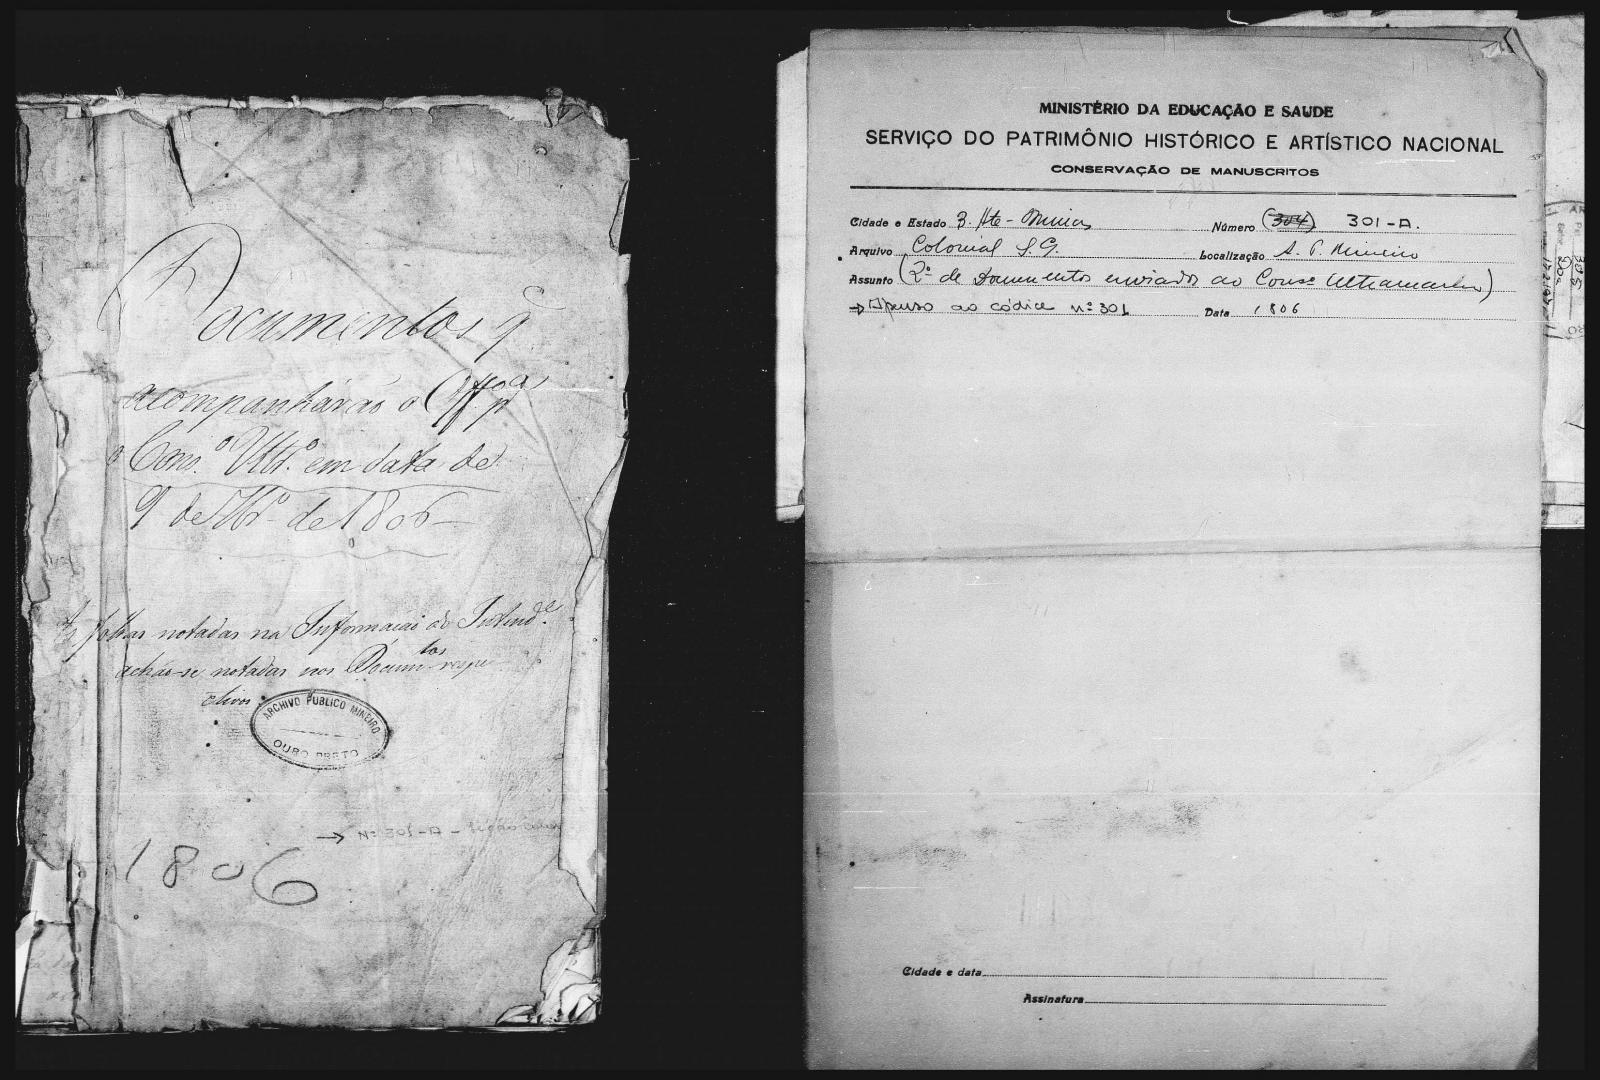 Documentos q̃
acompanharão o Off.º p.ª
o Cons.º Ultr.º em data de
9 de 7br.º de 1806
As folhas notadas na Informação do Intend.e
achão-se notadas nos Docum.tos respe
ctivos
ARCHIVO PUBLICO MINEIRO
OURO PRETO
→ Nº 301-A -
1806
MINISTÉRIO DA EDUCAÇÃO E SAUDE
SERVIÇO DO PATRIMÔNIO HISTÓRICO E ARTÍSTICO NACIONAL
CONSERVAÇÃO DE MANUSCRITOS
Cidade e Estado B. Hte - Minas Número (304) 301-A.
Arquivo Colonial S.G. Localização A. P. Mineiro
Assunto (2º de Documentos enviados ao Consº Ultramarino)
→ Apenso ao códice nº 301 Data 1806
Cidade e data
Assinatura